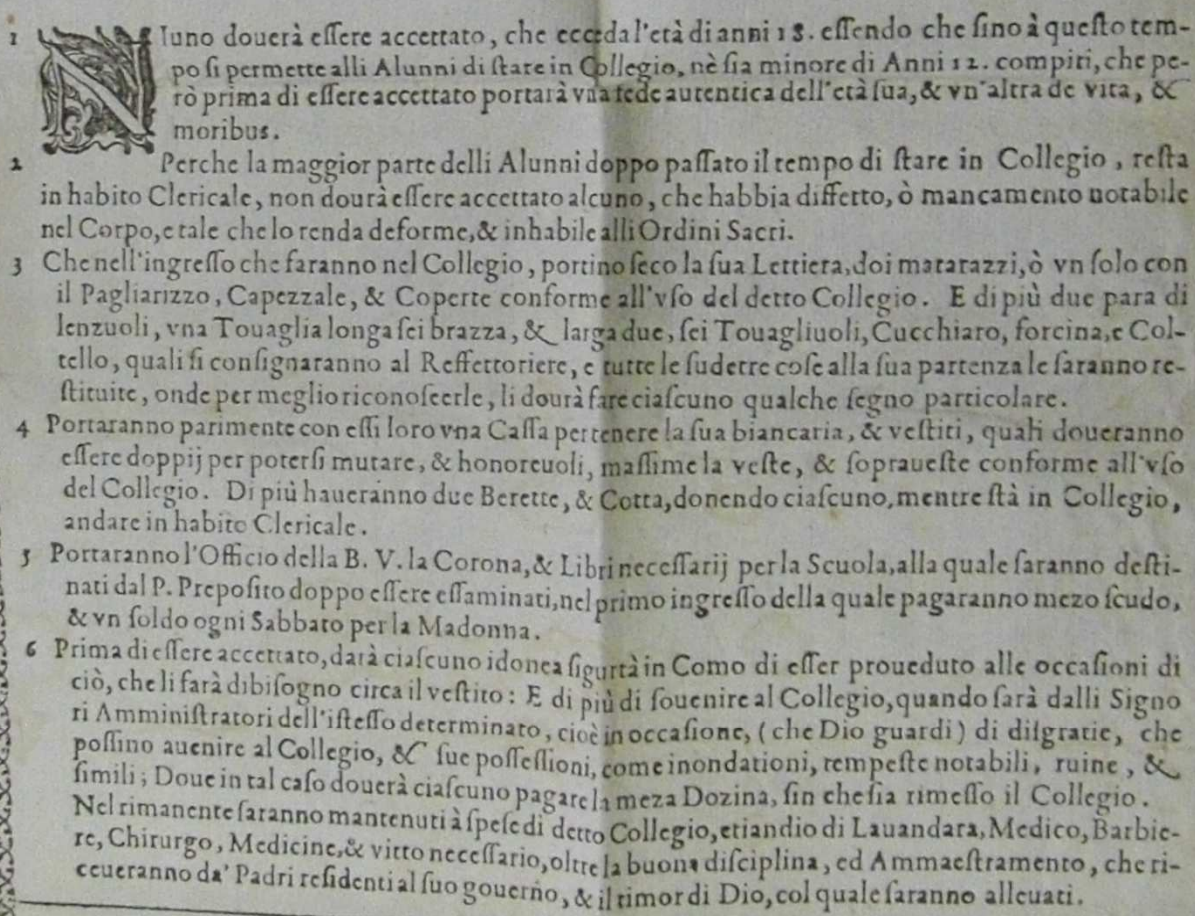 1 NIuno douerà eſſere accettato, che ecceda l'età di anni 18. eſſendo che ſino à queſto tem-
po ſi permette alli Alunni di ſtare in Collegio, nè ſia minore di Anni 12. compiti, che pe-
rò prima di eſſere accettato portarà vna fede autentica dell'età ſua, & vn'altra de vita, &
moribus.
2 Perche la maggior parte delli Alunni doppo paſſato il tempo di ſtare in Collegio, reſta
in habito Clericale, non dourà eſſere accettato alcuno, che habbia diffetto, ò mancamento notabile
nel Corpo, e tale che lo renda deforme, & inhabile alli Ordini Sacri.
3 Che nell'ingreſſo che faranno nel Collegio, portino ſeco la ſua Lettiera, doi matarazzi, ò vn ſolo con
il Pagliarizzo, Capezzale, & Coperte conforme all'vſo del detto Collegio. E di più due para di
lenzuoli, vna Touaglia longa ſei brazza, & larga due, ſei Touagliuoli, Cucchiaro, forcina, e Col-
tello, quali ſi conſignaranno al Reffettoriere, e tutte le ſudette coſe alla ſua partenza le ſaranno re-
ſtituite, onde per meglio riconoſcerle, li dourà fare ciaſcuno qualche ſegno particolare.
4 Portaranno parimente con eſſi loro vna Caſſa per tenere la ſua biancaria, & veſtiti, quali doueranno
eſſere doppij per poterſi mutare, & honoreuoli, maſſime la veſte, & ſopraueſte conforme all'vſo
del Collegio. Di più haueranno due Berette, & Cotta, donendo ciaſcuno, mentre ſtà in Collegio,
andare in habito Clericale.
5 Portaranno l'Officio della B. V. la Corona, & Libri neceſſarij per la Scuola, alla quale ſaranno deſti-
nati dal P. Prepoſito doppo eſſere eſſaminati, nel primo ingreſſo della quale pagaranno mezo ſcudo,
& vn ſoldo ogni Sabbato per la Madonna.
6 Prima di eſſere accettato, darà ciaſcuno idonea ſigurtà in Como di eſſer proueduto alle occaſioni di
ciò, che li farà dibiſogno circa il veſtito: E di più di ſouenire al Collegio, quando ſarà dalli Signo
ri Amminiſtratori dell'iſteſſo determinato, cioè in occaſione, (che Dio guardi) di diſgratie, che
poſſino auenire al Collegio, & ſue poſſeſſioni, come inondationi, tempeſte notabili, ruine, &
ſimili; Doue in tal caſo douerà ciaſcuno pagare la meza Dozina, ſin che ſia rimeſſo il Collegio.
Nel rimanente ſaranno mantenuti à ſpeſe di detto Collegio, etiandio di Lauandara, Medico, Barbie-
re, Chirurgo, Medicine, & vitto neceſſario, oltre la buona diſciplina, ed Ammaeſtramento, che ri-
ceueranno da' Padri reſidenti al ſuo gouerno, & il timor di Dio, col quale ſaranno alleuati.